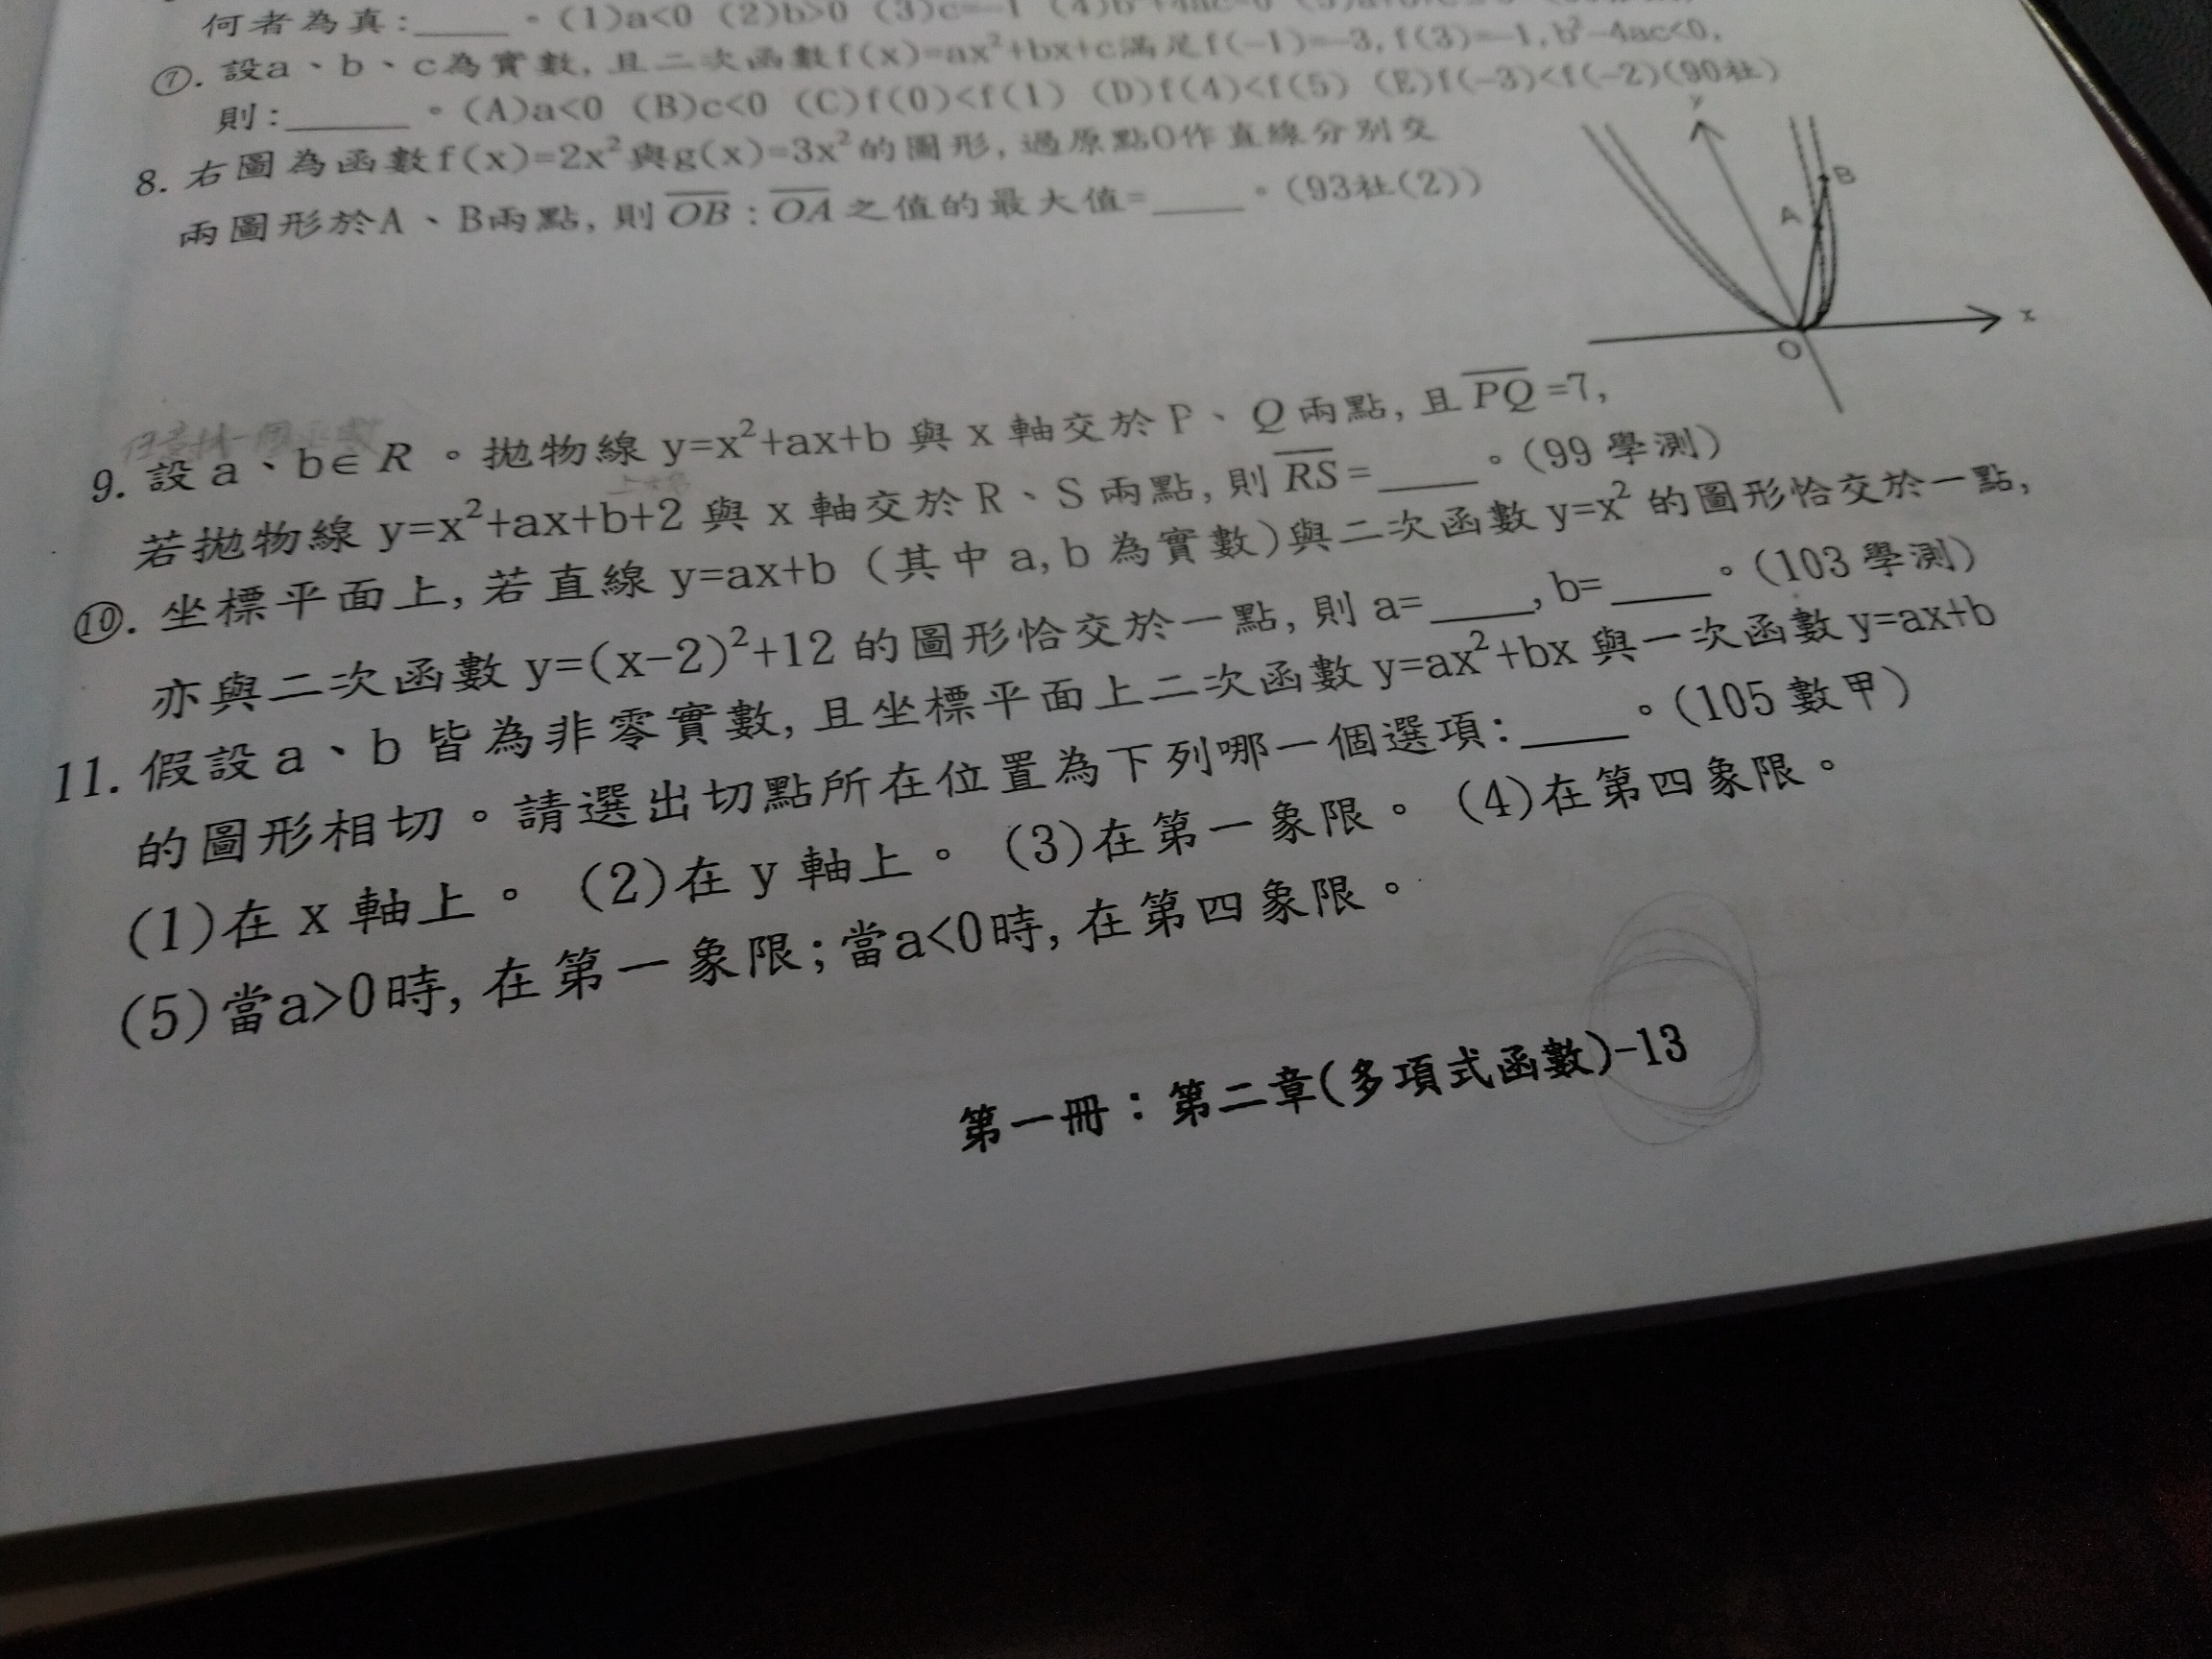 何者為真:____。(1)a<0 (2)b>0 (3)c=-1
⑦. 設a、b、c為實數,且二次函數f(x)=ax²+bx+c滿足f(-1)=-3,f(3)=-1,b²-4ac<0,
則:______。(A)a<0 (B)c<0 (C)f(0)<f(1) (D)f(4)<f(5) (E)f(-3)<f(-2)(90社)
8. 右圖為函數f(x)=2x²與g(x)=3x²的圖形,過原點O作直線分別交
兩圖形於A、B兩點,則OB:OA之值的最大值=____。(93社(2))
y
B
A
x
O
9. 設a、b∈R。拋物線 y=x²+ax+b 與 x 軸交於 P、Q 兩點,且PQ=7,
若拋物線 y=x²+ax+b+2 與 x 軸交於 R、S 兩點,則RS=____。(99 學測)
⑩. 坐標平面上,若直線 y=ax+b (其中 a,b 為實數)與二次函數 y=x² 的圖形恰交於一點,
亦與二次函數 y=(x-2)²+12 的圖形恰交於一點,則 a=____,b=____。(103 學測)
11. 假設 a、b 皆為非零實數,且坐標平面上二次函數 y=ax²+bx 與一次函數 y=ax+b
的圖形相切。請選出切點所在位置為下列哪一個選項:____。(105 數甲)
(1)在 x 軸上。 (2)在 y 軸上。 (3)在第一象限。 (4)在第四象限。
(5)當a>0時,在第一象限;當a<0時,在第四象限。
第一冊:第二章(多項式函數)-13